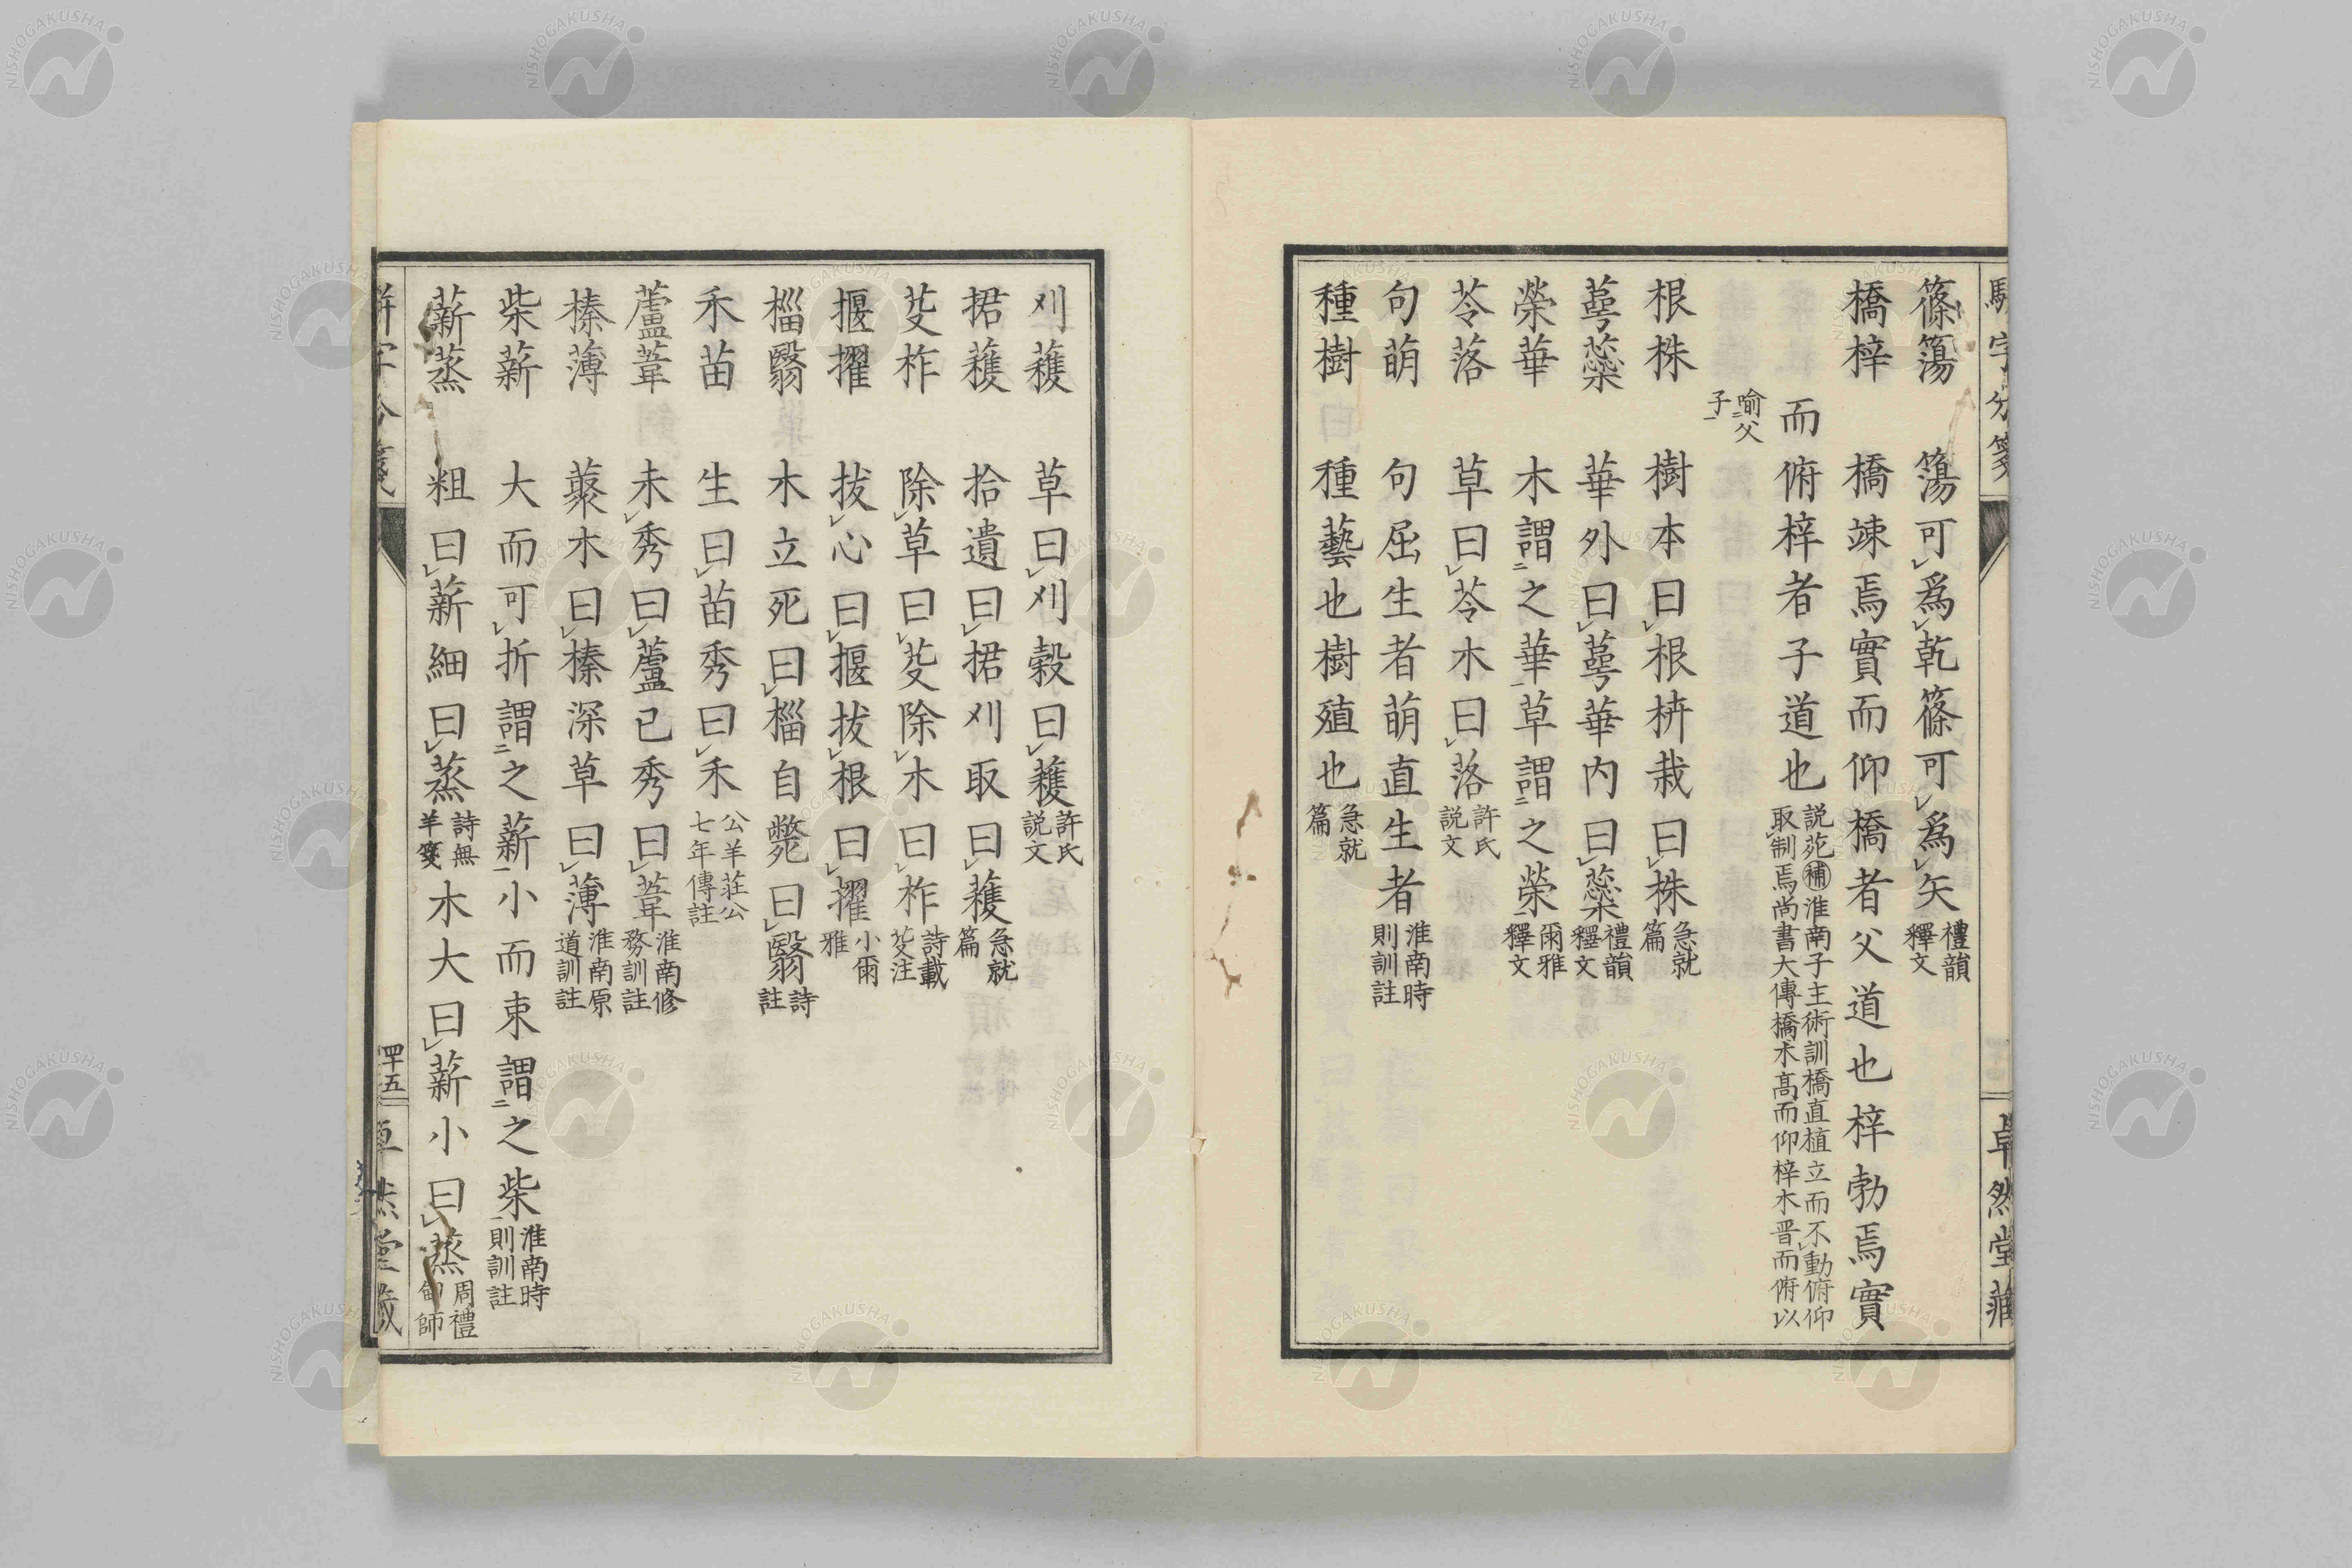 篠簜　簜可為乾篠可為矢禮韻釋文
橋梓　橋竦焉實而仰橋者父道也梓勃焉實
而俯梓者子道也説苑補淮南子主術訓橋直植立而不動俯仰取制焉尚書大傳橋木高而仰梓木晋而俯以
喻父子
根株　樹本曰根枿栽曰株急就篇
萼蘂　華外曰萼華内曰蘂禮韻釋文
榮華　木謂之華草謂之榮爾雅釋文
苓落　草曰苓木曰落許氏説文
句萌　句屈生者萌直生者淮南時則訓註
種樹　種藝也樹殖也急就篇
卓然堂藏
刈穫　草曰刈穀曰穫許氏説文
捃穫　拾遺曰捃刈取曰穫急就篇
芟柞　除草曰芟除木曰柞詩載芟注
揠擢　拔心曰揠拔根曰擢小爾雅
椔翳　木立死曰椔自斃曰翳詩註
禾苗　生曰苗秀曰禾公羊莊公七年傳註
蘆葦　未秀曰蘆已秀曰葦淮南修務訓註
榛薄　藂木曰榛深草曰薄淮南原道訓註
柴薪　大而可折謂之薪小而束謂之柴淮南時則訓註
薪蒸　粗曰薪細曰蒸詩無羊箋木大曰薪小曰蒸周禮甸師
四十五